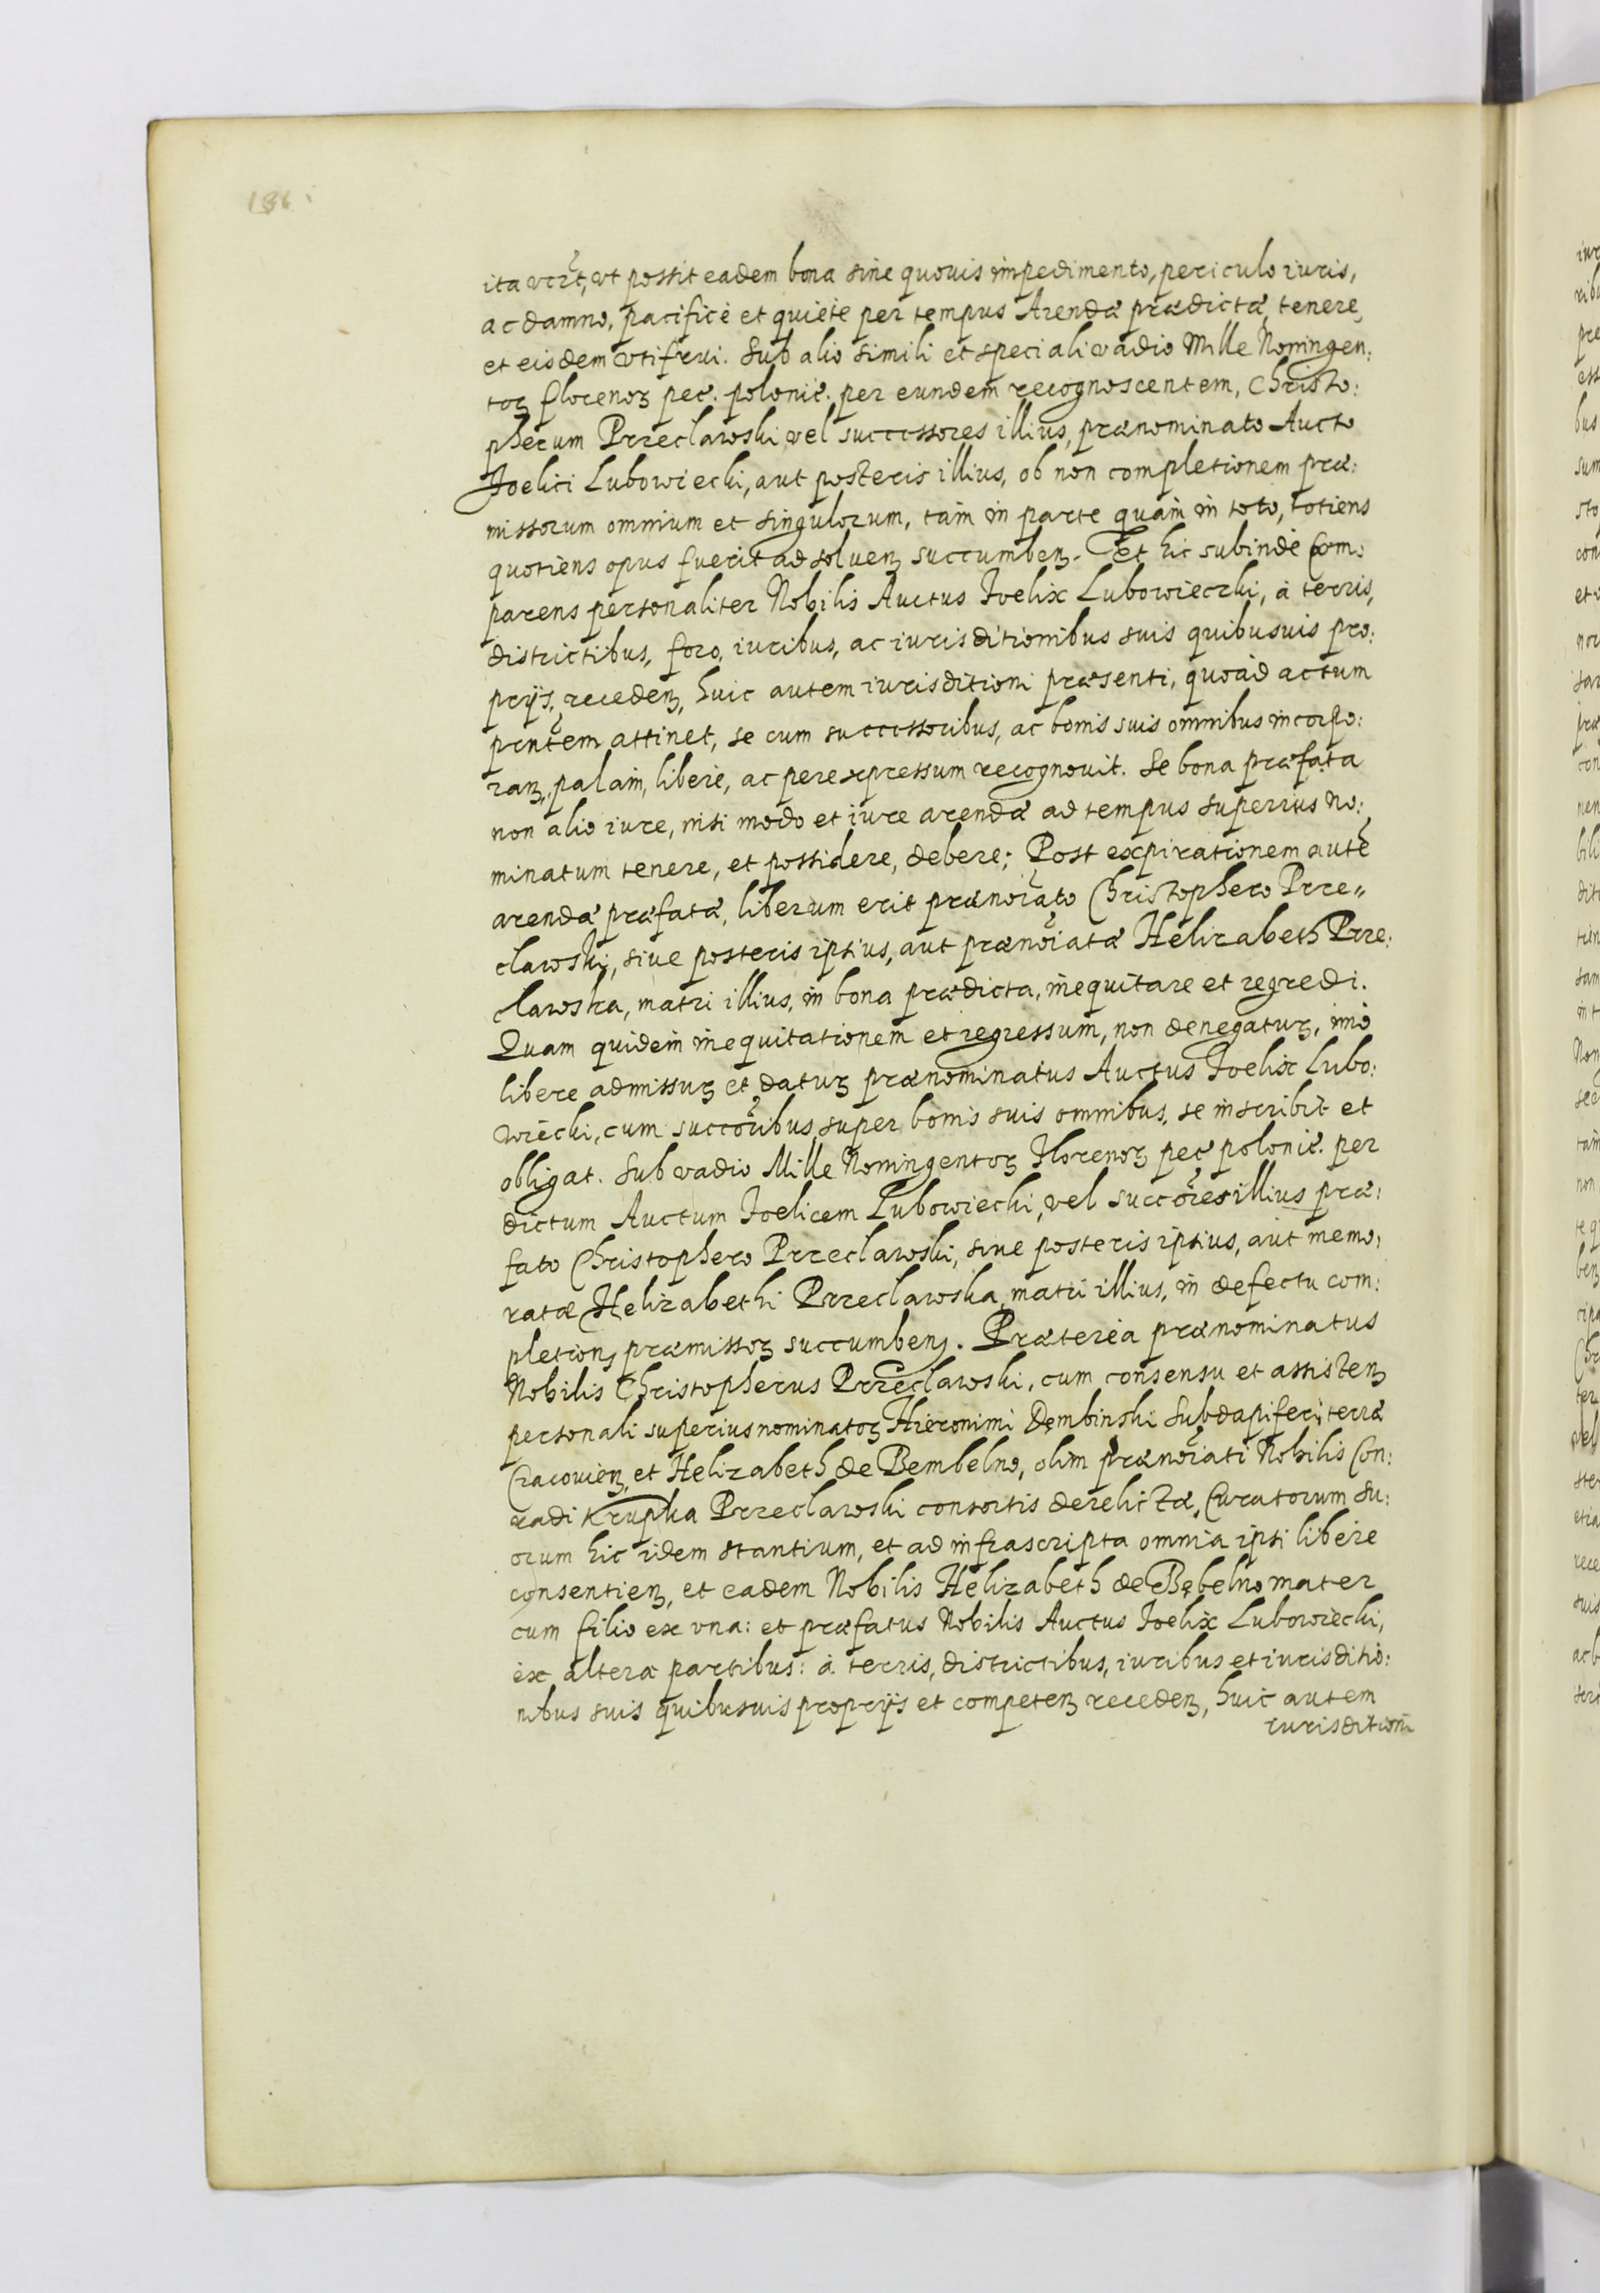 186
ita vcz̃t, vt possit eadem bona sine quouis impedimento, periculo iuris,
ac damno, pacificè et quietè per tempus Arendæ prædictæ, tenere,
et eisdem vtifrui. Sub alio simili et speciali vadio Mille Noningen:
toꝝ florenoꝝ pec. polonic. per eundem recognoscentem, Christo:
pherum Przeclawski, vel successores illius, prænominato Aucto
Foelici Lubowiecki, aut posteris illius, ob non completionem præ:
missorum omnium et singulorum, tàm in parte quàm in toto, totiens
quotiens opus fuerit ad soluenꝝ succumbenꝝ. Et hic subindè Com:
parens personaliter Nobilis Auctus Foelix Lubowieczki, à terris,
districtibus, foro, iuribus, ac iurisditionibus suis quibusuis pro:
prijs, recedenꝝ, huic autem iurisditioni præsenti, quoàd actum
pñtem attinet, se cum successoribus, ac bonis suis omnibus incorpo:
ranꝝ, palàm, liberè, ac per expressum recognouit. Se bona præfata
non alio iure, nisi modo et iure arendæ ad tempus superius no:
minatum tenere, et possidere, debere; Post expirationem autẽ
arendæ præfatæ, liberum erit prænoĩato Christophero Prze„
clawski, siue posteris ipsius, aut prænoĩatæ Helizabeth Prze:
clawska, matri illius, in bona prædicta, inequitare et regredi.
Quam quidem inequitationem et regressum, non denegatuꝝ, imò
libere admissuꝝ et datuꝝ prænominatus Auctus Foelix Lubo:
wiecki, cum succõribus, super bonis suis omnibus, se inscribit et
obligat. Sub vadio Mille Noningentoꝝ Florenoꝝ pec. polonic. per
dictum Auctum Foelicem Lubowiecki, vel succõres illius præ:
fato Christophero Przeclawski, siue posteris ipsius, aut memo:
ratæ Helizabethi Przeclawska, matri illius, in defectu com:
pletionꝭ præmissoꝝ succumbenꝭ. Præterèa prænominatus
Nobilis Christopherus Przeclawski, cum consensu et assistenꝝ
personali superius nominatoꝝ Hieronimi Dembinski Subdapiferi terræ
Cracouienꝝ, et Helizabeth de Bembelno, olim prænoĩati Nobilis Con:
radi Krupka Przeclawski consortis derelictæ, Curatorum su:
orum hic idem stantium, et ad infrascripta omnia ipsi liberè
consentienꝝ, et eadem Nobilis Helizabeth de Bębelno mater
cum filio ex vna: et præfatus Nobilis Auctus Foelix Lubowiecki,
ex altera partibus: à terris, districtibus, iuribus et iurisditio:
nibus suis quibusuis proprijs et competenꝝ recedenꝝ, huic autem
iurisditioni